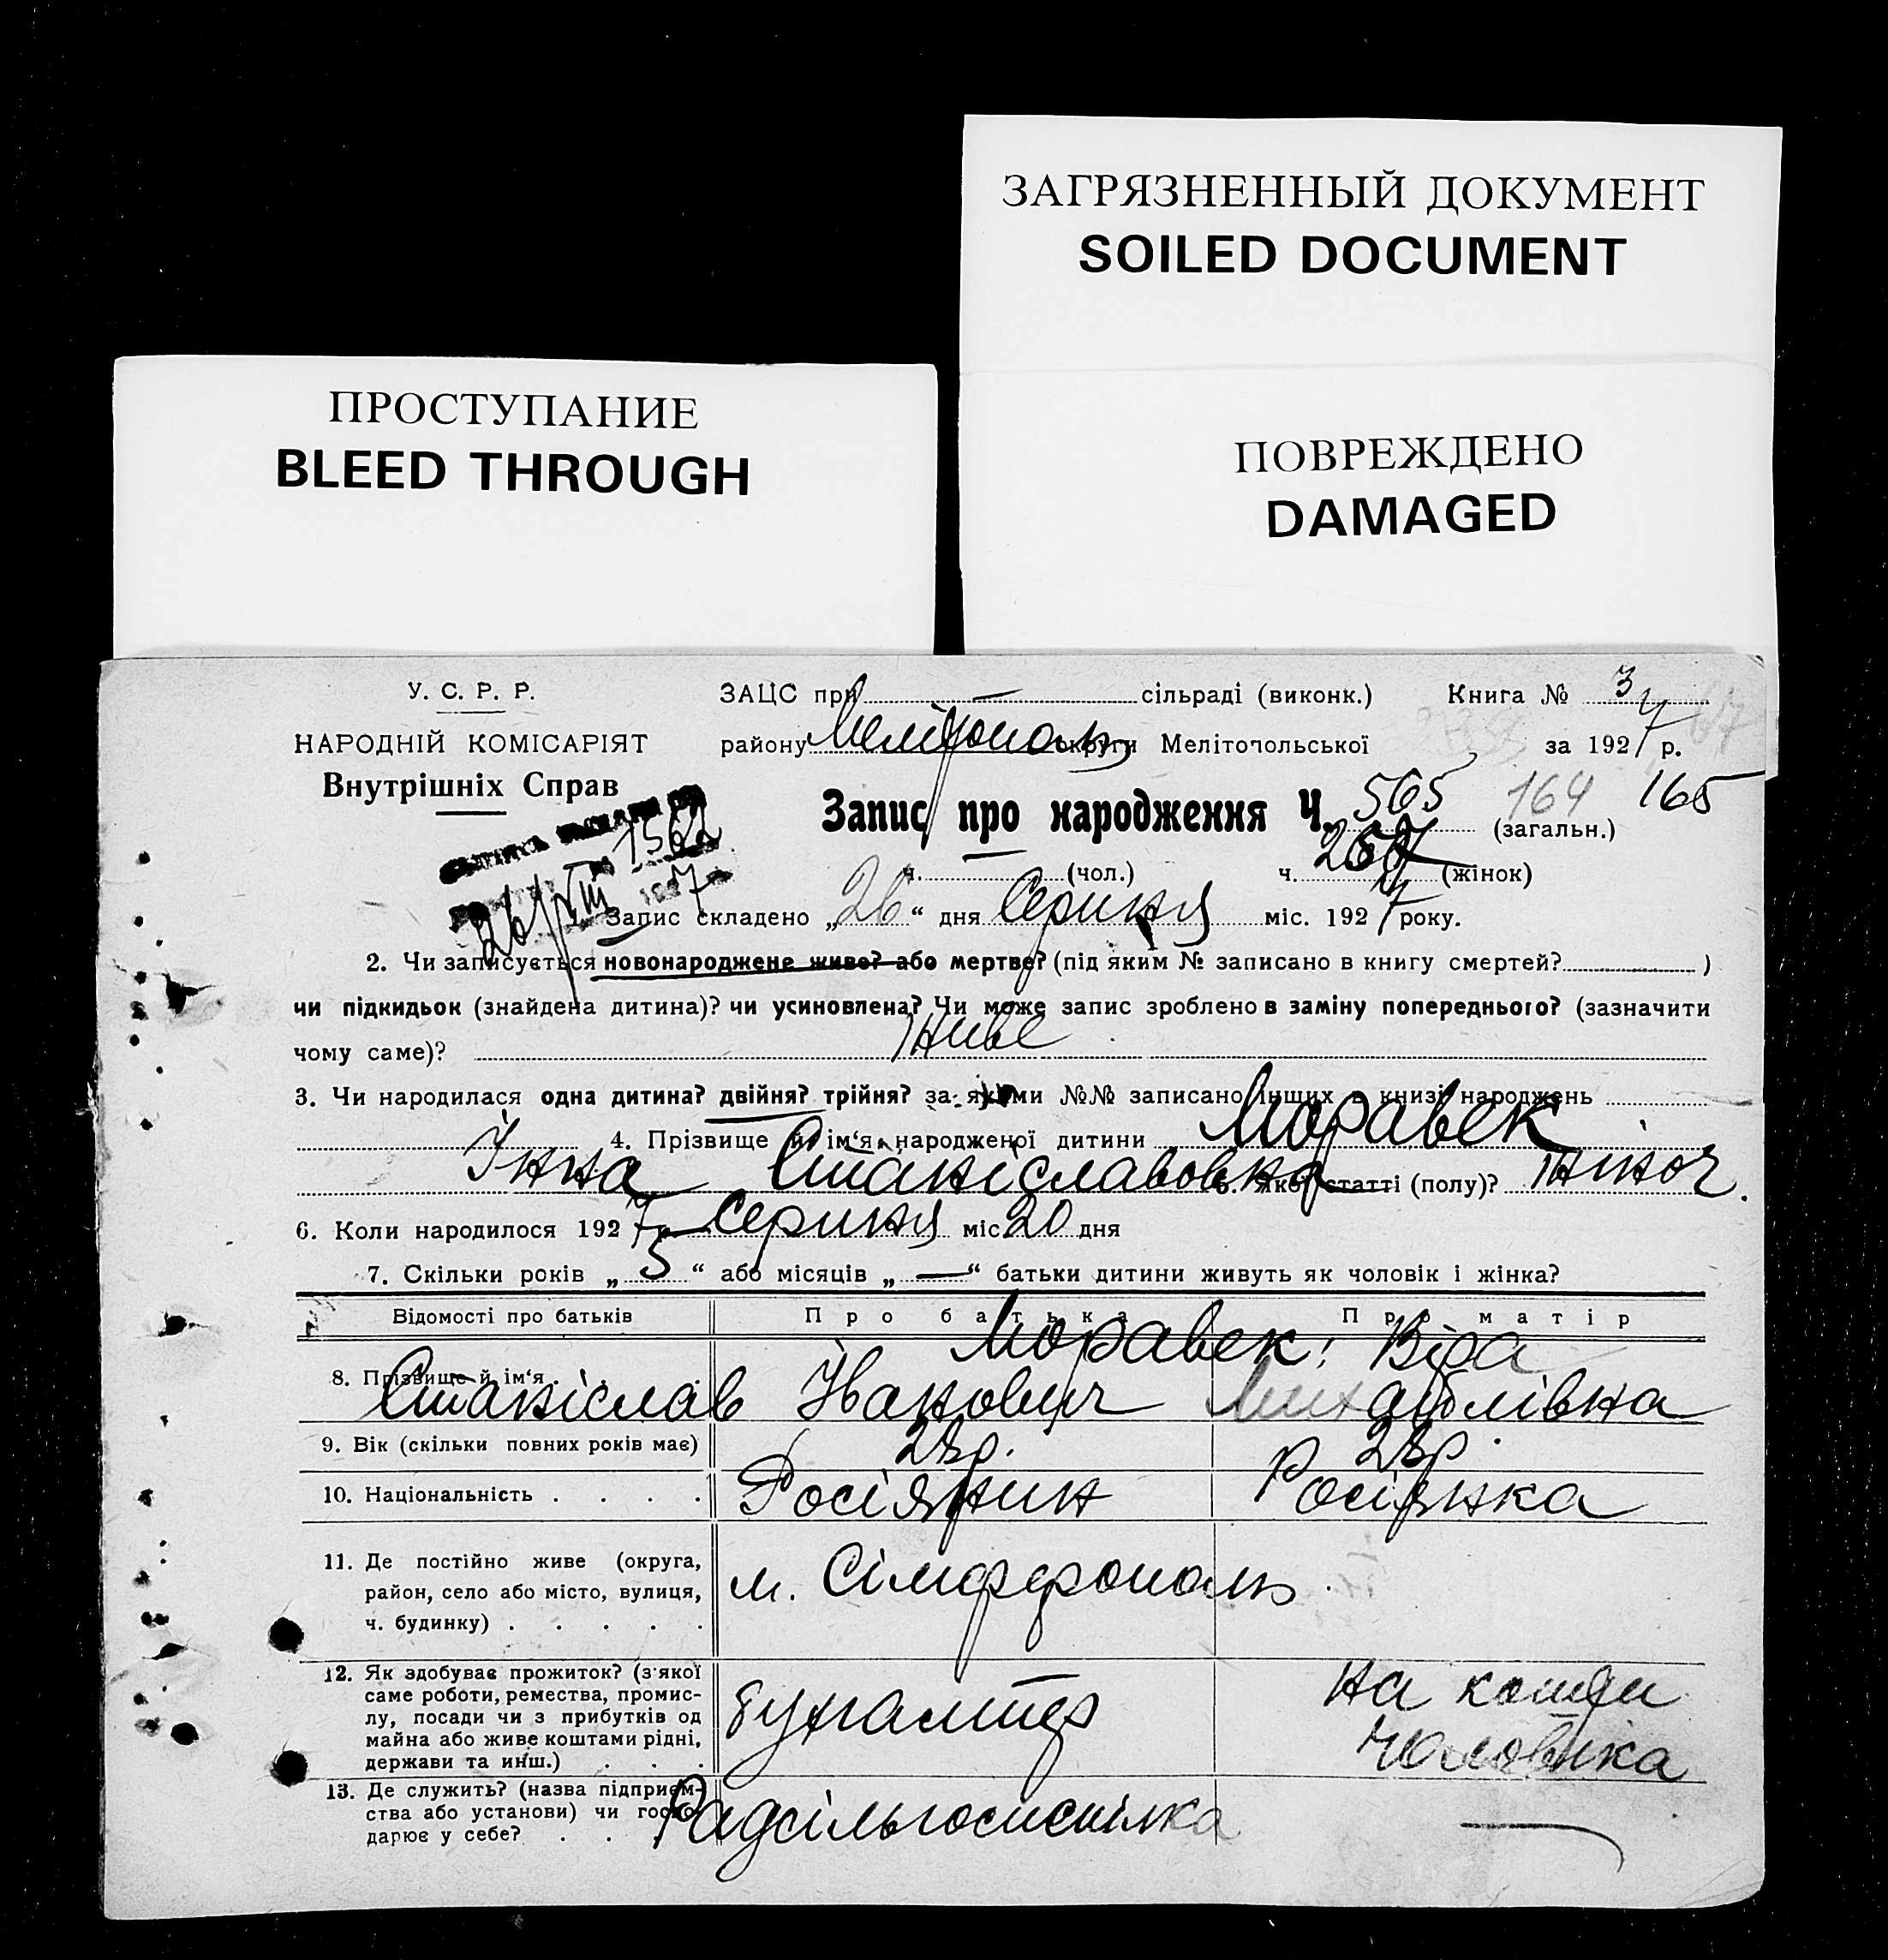 ЗАГРЯЗНЕННЫЙ ДОКУМЕНТ
SOILED DOCUMENT
ПРОСТУПАНИЕ
BLEED THROUGH
ПОВРЕЖДЕНО
DAMAGED
У. С. Р. Р.
НАРОДНІЙ КОМІСАРІЯТ
Внутрішніх Справ
ЗАЦС при — сільраді (виконк.) Книга № 3
району Мелітополь округи Мелітопольської за 1927 р.
Запис про народження Ч. 565 (загальн.) 164 165
ч. (чол.) ч. (жінок)
1562
26/VIII 7
Запис складено „26“ дня Серпня міс. 1927 року.
2. Чи записується новонароджене живе? або мертве? (під яким № записано в книгу смертей? )
чи підкидьок (знайдена дитина)? чи усиновлена? Чи може запис зроблено в заміну попереднього? (зазначити
чому саме)? Живе
3. Чи народилася одна дитина? двійня? трійня? за якими №№ записано інших в книзі народжень
4. Прізвище й ім‘я народженої дитини Моравек
Інна Станіславовна 5. Якої статті (полу)? жіноч.
6. Коли народилося 1927 р. Серпня міс. 20 дня
7. Скільки років „5“ або місяців „—“ батьки дитини живуть як чоловік і жінка?
Відомості про батьків Про батька Про матір
8. Прізвище й ім‘я Моравек Станіслав Іванович Віра Михайлівна
9. Вік (скільки повних років має) 28 р. 28 р.
10. Національність . . . . Росіянин Росіянка
11. Де постійно живе (округа,
район, село або місто, вулиця,
ч. будинку) . . . . .
м. Сімферополь
12. Як здобуває прожиток? (з якої
саме роботи, ремества, промис-
лу, посади чи з прибутків од
майна або живе коштами рідні,
держави та инш.) . . .
бухгалтер
на кошти
чоловіка
13. Де служить? (назва підприєм-
ства або установи) чи госпо-
дарює у себе? . . .
Радсільгоспспілка —